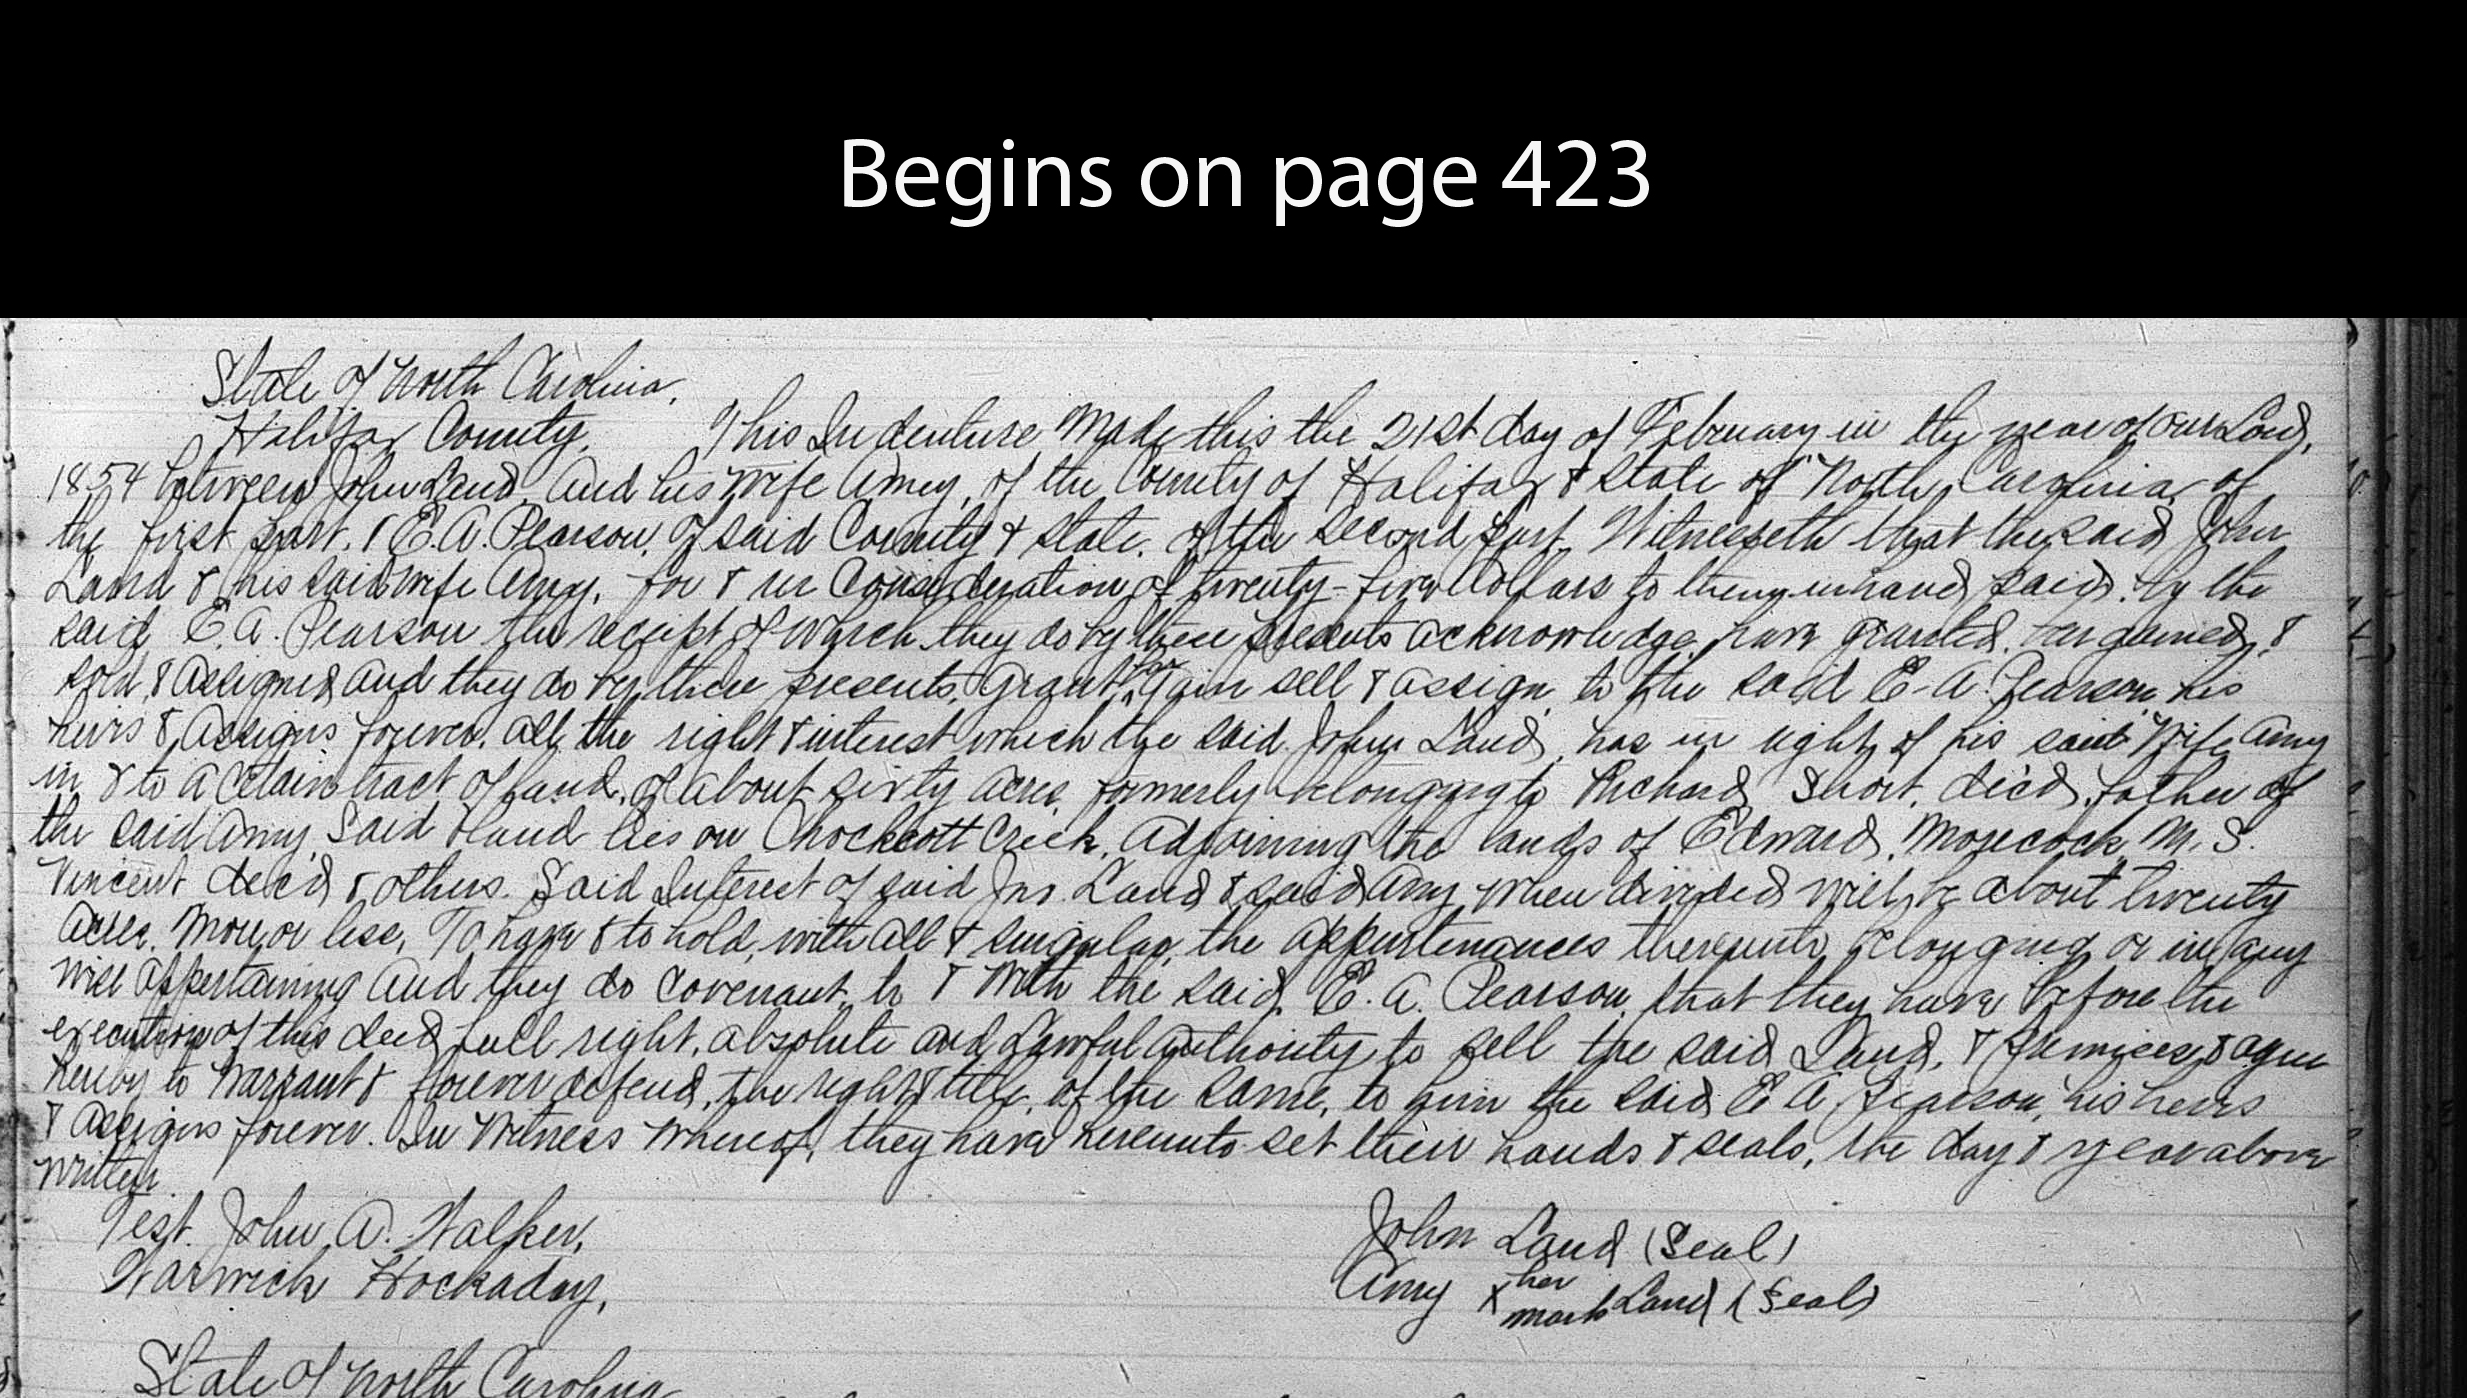 Begins on page 423
State of North Carolina,
Halifax County. This Indenture Made this the 21st day of February in the year of our Lord,
1854 between John Land, And his wife Amey, of the County of Halifax & State of North Carolina of
the first part, & E. A. Pearson, of said County & State. of the second part, Witnesseth that the said John
Land & his said wife Amy, for & in Consideration of twenty-five dollars to them in hand paid, by the
said E. A. Pearson the receipt of which they do by these presents acknowledge, have granted, bargained, &
sold, & assigned and they do by these presents, grant, bargain sell & assign, to the said E. A. Pearson, his
heirs & Assigns forever, all the right & interest which the said John Land, has in right of his said Wife Amy
in & to a certain tract of land, of about sixty acres, formerly belonging to Richard Short, dec'd, father of
the said Amy, Said land lies on Chockeott Creek, Adjoining the lands of Edward Morecock, M. S.
Vincent dec'd & others. Said Interest of said Jno. Land & said Amy when divided will be about twenty
acres, more or less, To have & to hold, with all & singular, the appurtenances thereunto belonging or in any
wise appertaining And they do covenant, to & with the said E. A. Pearson, that they have before the
execution of this deed full right, absolute and Lawful authority, to sell the said Land, & premises, & agree
hereby to Warrant & forever defend, the right & title, of the same, to him the said E A Pearson, his heirs
& Assigns forever. In Witness whereof, they have hereunto set their hands & seals, the day & year above
written.
Test. John A. Walker,
Warwick Hockaday,
John Land (Seal)
Amy X her mark Land (Seal)
State of North Carolina